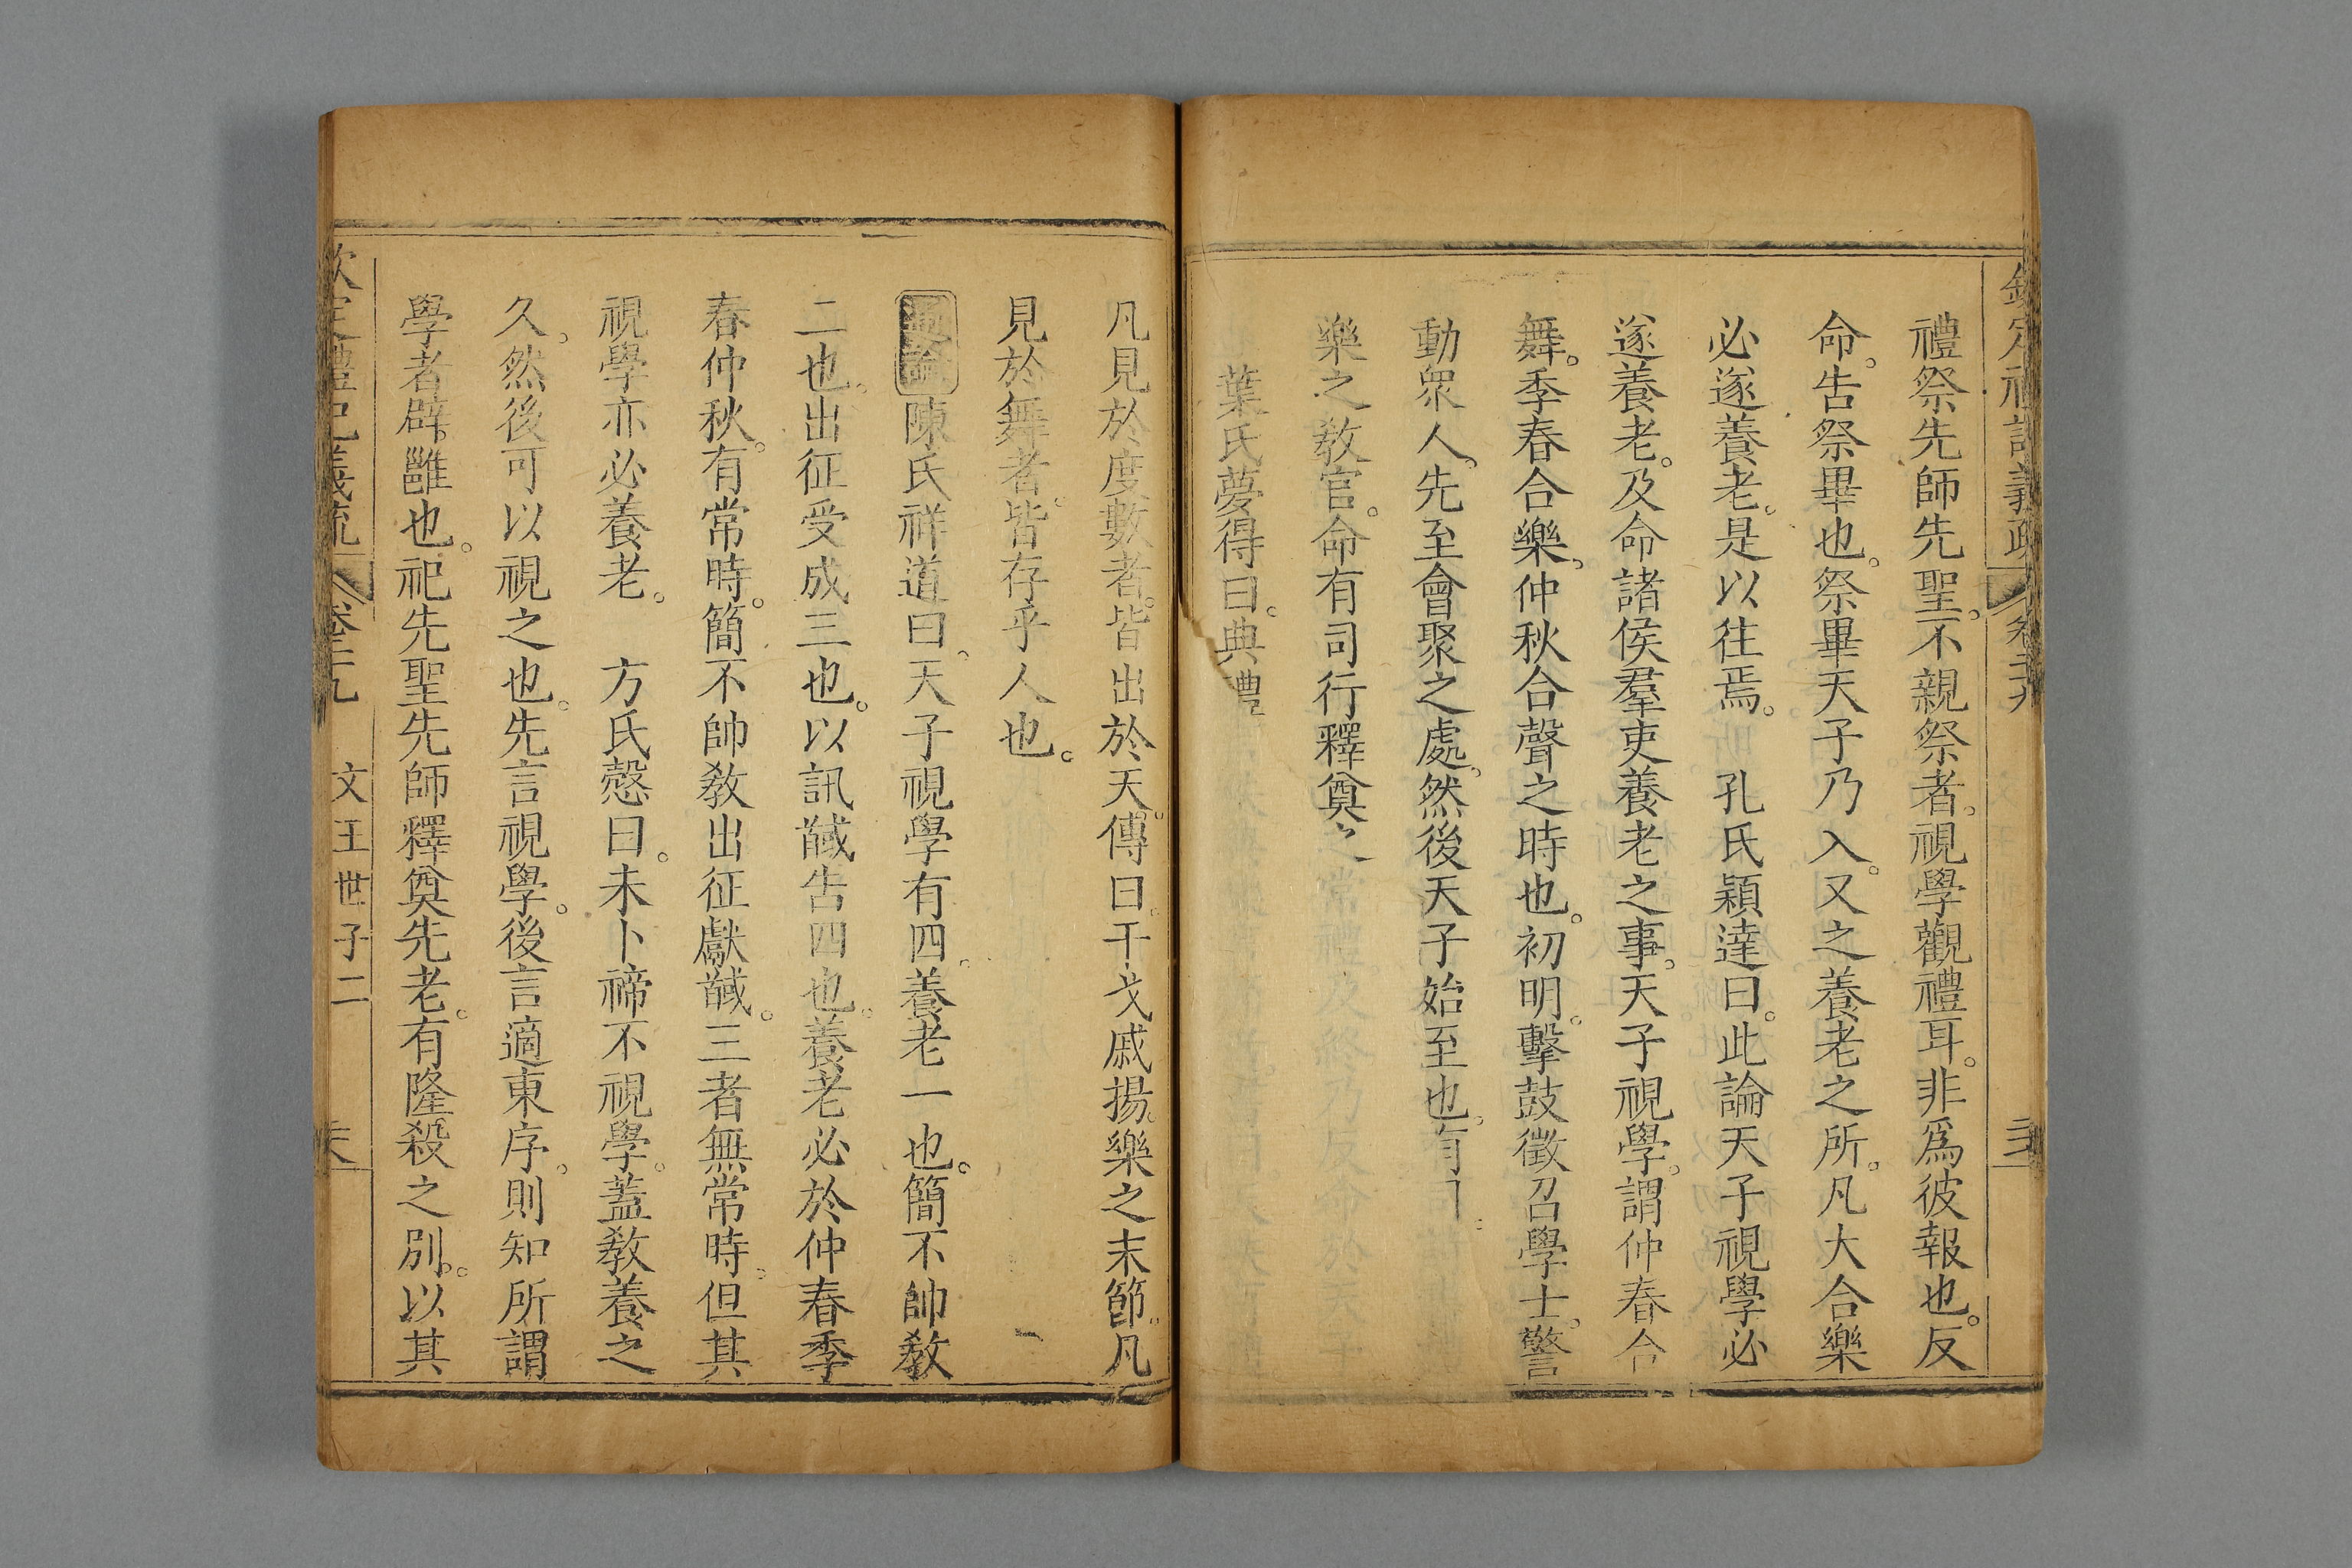 禮祭先師先聖。不親祭者。視學觀禮耳。非爲彼報也。反
命。告祭畢也。祭畢天子乃入。又之養老之所。凡大合樂
必遂養老。是以往焉。　孔氏穎達曰。此論天子視學必
遂養老。及命諸侯羣吏養老之事。天子視學。謂仲春合
舞。季春合樂。仲秋合聲之時也。初明。擊鼓徵召學士。警
動眾人。先至會聚之處。然後天子始至也。有司
樂之敎官。命有司行釋奠之常禮
葉氏夢得曰。典禮
凡見於度數者。皆出於天。傳曰。干戈戚揚。樂之末節。凡
見於舞者。皆存乎人也。
通論陳氏祥道曰。天子視學有四。養老一也。簡不帥敎
二也。出征受成三也。以訊馘告四也。養老必於仲春季
春仲秋。有常時。簡不帥敎出征獻馘。三者無常時。但其
視學亦必養老。　方氏慤曰。未卜禘不視學。蓋敎養之
久。然後可以視之也。先言視學。後言適東序。則知所謂
學者辟雝也。祀先聖先師釋奠先老。有隆殺之別。以其
欽定禮記義疏　卷二十九　文王世子二